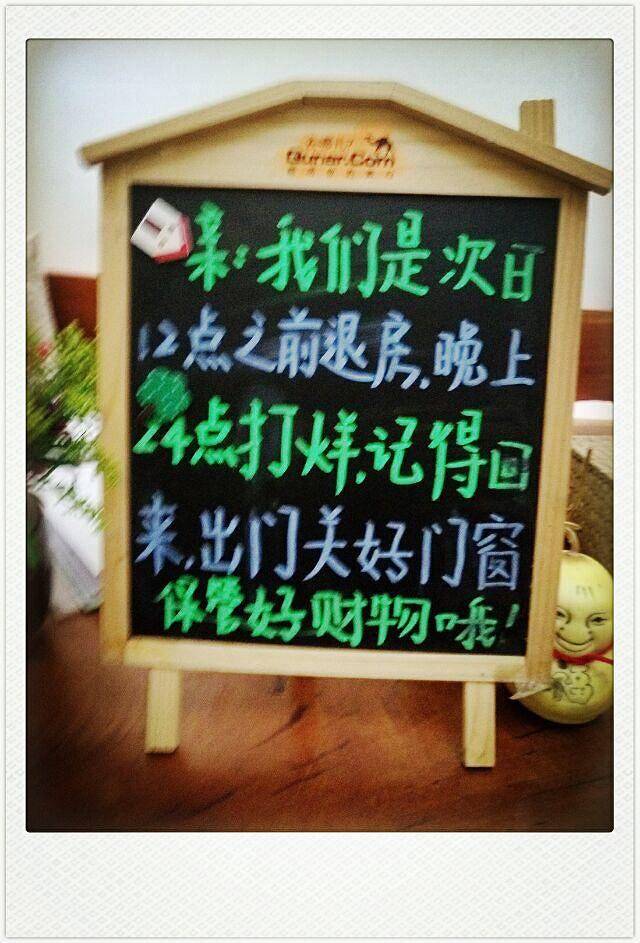 Qunar.Com
亲:我们是次日
12点之前退房,晚上
24点打烊,记得回
来,出门关好门窗
保管好财物哦!